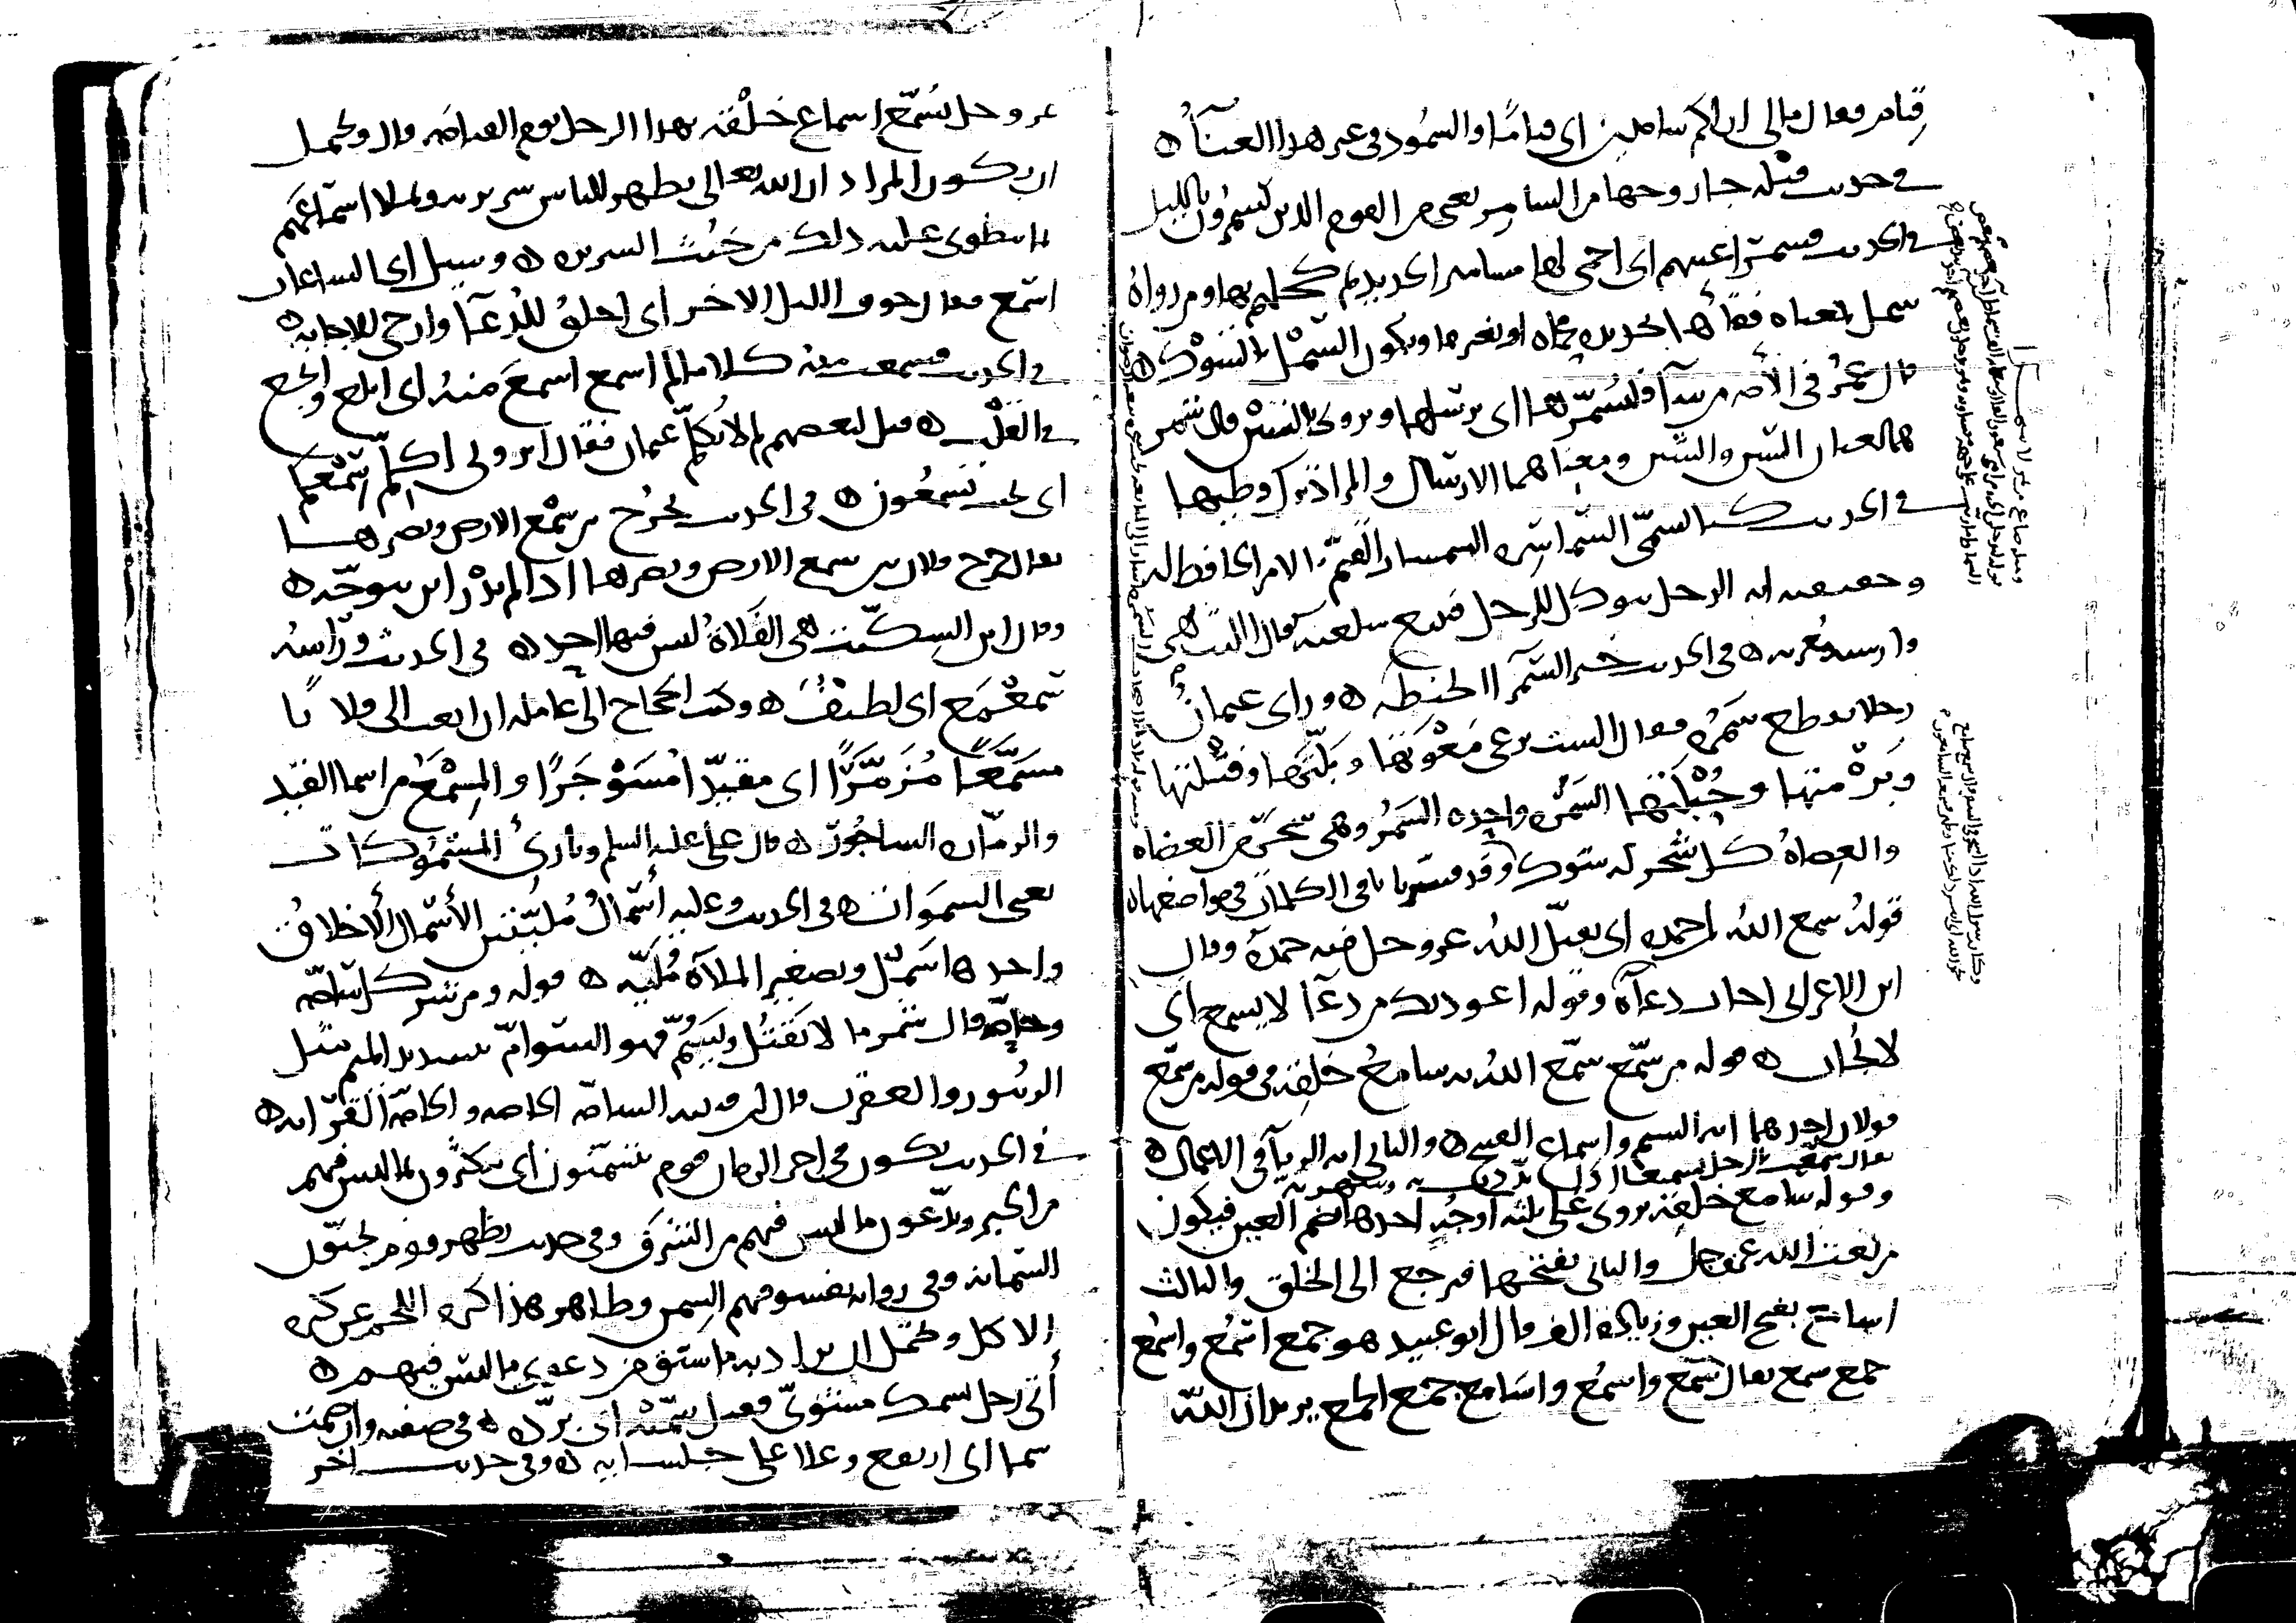 قيام فقال مالي اراكم سامدين اي قياما والسمود في غير هذا الغناء ه
في حديث قيلة جاء زوجها من السامر يعني من القوم الذين يسمرون بالليل
في الحديث فسمر اعينهم اي احمى لها مسامير الحديد ثم كحلهم بها ومن رواه
سمل فمعناه فقأها بحديدة محماة او بغيرها ويكون السمل بالشوك ه
قال عمر في الأمة من شاء فليسمرها اي يرسلها ويروى بالشين قال شمر
هما لغتان السين والشين ومعناهما الارسال والمراد ترك وطيها
في الحديث كنا نسمى السماسرة السمسار القيم بالامر الحافظ له
وحقيقته انه الرجل يتوكل للرجل فيبيع سلعته قال الليث هي
فارسية معربة ه في الحديث خبز السمراء الحنطة ه وراى عثمان
رجلا يقطع سمرة فقال الست ترعى مغوتها وبلتها وفتلتها
وبرمتها وحبلتها السمر واحده السمر وهي شجر من العضاه
والعضاه كل شجر له شوك وقد فسرنا باقي الكلمات في مواضعها ه
قوله سمع الله لمن حمده اي تقبل الله عز وجل منه حمده وقال
ابن الاعرابي اجاب دعاه وقوله اعوذ بك من دعاء لا يسمع اي
لا يجاب ه قوله من سمع سمع الله به سامع خلقه في قوله من سمع
قولان احدهما انه السب واسماع القبيح ه والثاني انه الرياء في الاعمال ه
يقال سمعت بالرجل تسميعا اذا نددت به وشهرته
وقوله سامع خلقه يروى على ثلثة اوجه احدها بضم العين فيكون
من نعت الله عز وجل والثاني بفتحها فيرجع الى الخلق والثالث
اسامع بفتح العين وزيادة الف قال ابو عبيد هو جمع اسمع واسمع
جمع سمع يقال سمع واسمع واسامع جمع الجمع يريد ان الله
عز وجل يسمع اسماع خلقه بهذا الرجل يوم القيامة قال ويحتمل
ان يكون المراد ان الله تعالى يظهر للناس سريرته ويملا اسماعهم
بما ينطوي عليه ذلك من خبث السريرة ه وسئل اي الساعات
اسمع فقال جوف الليل الاخر اي اخلق للدعاء وارجى للاجابة ه
في الحديث فسمعت منه كلاما لم اسمع اسمع منه اي ابلغ وانجع
في القلب ه قيل لبعضهم لم لا تكلم عثمان فقال اترونني اكلمه سمعكم
اي بحيث تسمعون ه في الحديث يخرج بين سمع الارض وبصرها
يقال خرج فلان بين سمع الارض وبصرها اذا لم يدر اين يتوجه ه
وقال ابن السكيت هي الفلاة ليس فيها احد ه في الحديث ورأسه
سمعمع اي لطيف ه وكتب الحجاج الى عامله ان ابعث الي فلانا
مسمعا مزمرا اي مقيدا مسوجرا والمسمع من اسماء القيد
والزمارة الساجور ه قال علي عليه السلم وبارئ المسموكات
يعني السموات ه في الحديث وعليه أسمال مليتين الأسمال الأخلاق
واحدها سمل وتصغير الملاءة ملية ه قوله ومن شر كل سامة
وحامة قال شمر ما لا يقتل ويسم فهو السوام بتشديد الميم مثل
الزنبور والعقرب قال ابن قتيبة السامة الخاصة والحامة القرابة ه
في الحديث يكون في اخر الزمان قوم يتسمنون اي يتكثرون بما ليس فيهم
من الخير ويدعون ما ليس فيهم من الشرف وفي حديث يظهر قوم يحبون
السمانة وفي رواية يفشو فيهم السمن وظاهر هذا كثرة اللحم عن كثرة
الاكل ويحتمل ان يراد به ما سبق من دعوى ما ليس فيهم ه
أتي رجل بسمك مشوي فقيل سمنه اي برده ه في صفته وان صمت
سما اي ارتفع وعلا على جلسايه ه وفي حديث اخر